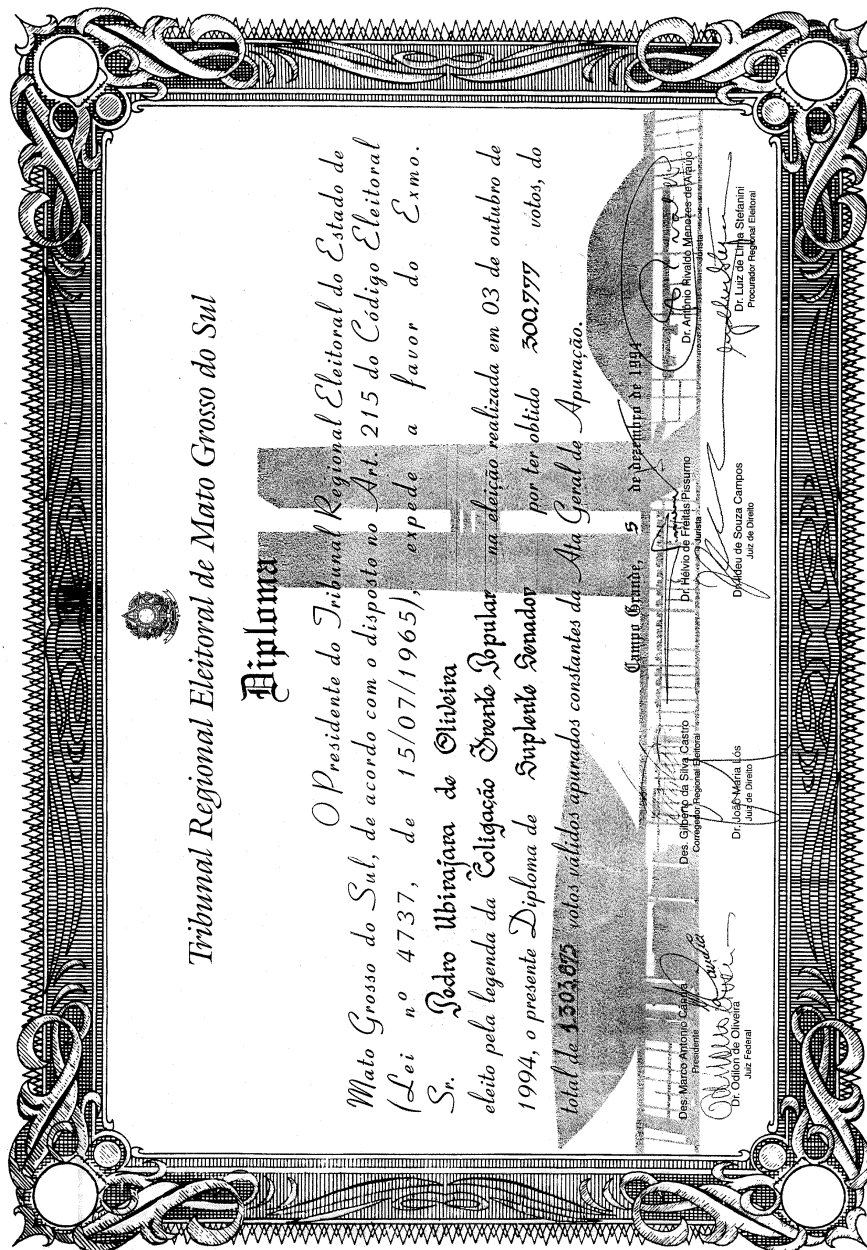 Tribunal Regional Eleitoral de Mato Grosso do Sul
Diploma
O Presidente do Tribunal Regional Eleitoral do Estado de
Mato Grosso do Sul, de acordo com o disposto no Art. 215 do Código Eleitoral
(Lei nº 4737, de 15/07/1965), expede a favor do Exmo.
Sr. Pedro Ubirajara de Oliveira
eleito pela legenda da Coligação Frente Popular na eleição realizada em 03 de outubro de
1994, o presente Diploma de Suplente Senador por ter obtido 300.777 votos, do
total de 1.303.875 votos válidos apurados constantes da Ata Geral de Apuração.
Campo Grande, 5 de dezembro de 1994
Des. Marco Antonio Cândia
Presidente
Des. Gilberto da Silva Castro
Corregedor Regional Eleitoral
Dr. Hélvio de Freitas Pissurno
Jurista
Dr. Antônio Rivaldo Menezes de Araújo
Jurista
Dr. Odilon de Oliveira
Juiz Federal
Dr. João Maria Lós
Juiz de Direito
Dr. Aldeu de Souza Campos
Juiz de Direito
Dr. Luiz de Lima Stefanini
Procurador Regional Eleitoral